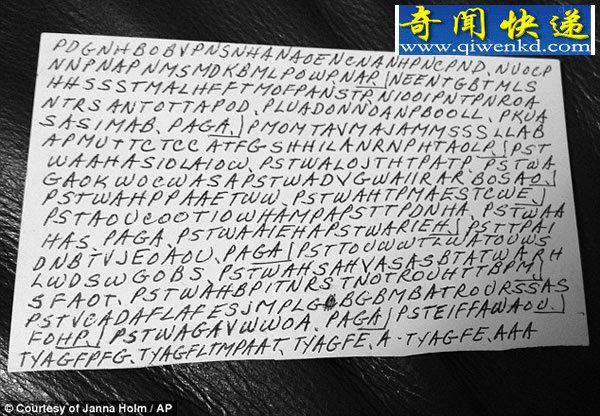 奇闻快递
www.qiwenkd.com
PDGNHBOBVPNSNHANAOENCNANHPNCPND, NUOCP
NNPNAPNMSMDKBMLPOWP,NAP,|NEENTGBTMLS
HHSSSTMALHFFTMOFPANSTP,NIOOIPNTPNROA
NTRSANTOTTAPOD, PLUADONNDANPBOOLL, PKUA
SASIMAB, PAGA,|PMOMTAVMAJAMMSSSLLAB
APMUTTCTCCATFG-SHHILANRNPHTAOLP,|PST
WAAHASIOLAIOW, PSTWALOJTHTPATP, PSTWA
GAOKWOCWASAPSTWADVGWAIIRAR BOSAO,|
PSTWAHPPAAETWW, PSTWAHTPMAESTCWE,|
PSTAOUCOOTIOWHAMPAPSTTPDNHA, PSTWAA
HAS, PAGA, PSTWAAIEHAPSTWARIEH,|PSTTPAI
DNBTVJEOAOU, PAGA|PSTTOUWWTLWATOUWS
LWDSWGOBS, PSTWAHSAHVASASBTATWARH
SFAOT, PSTWAHBPITNRSTNOTROUHTTBPM,|
PSTVCADAFLAFESJMPLG BGBMBATROURSSAS
FOHP,|PSTWAGAVWWOA, PAGA|PSTEIFFAWAOU,|
TYAGFPFG,TYAGFLTMPAAT,TYAGFE,A-TYAGFE,AAA
© Courtesy of Janna Holm / AP